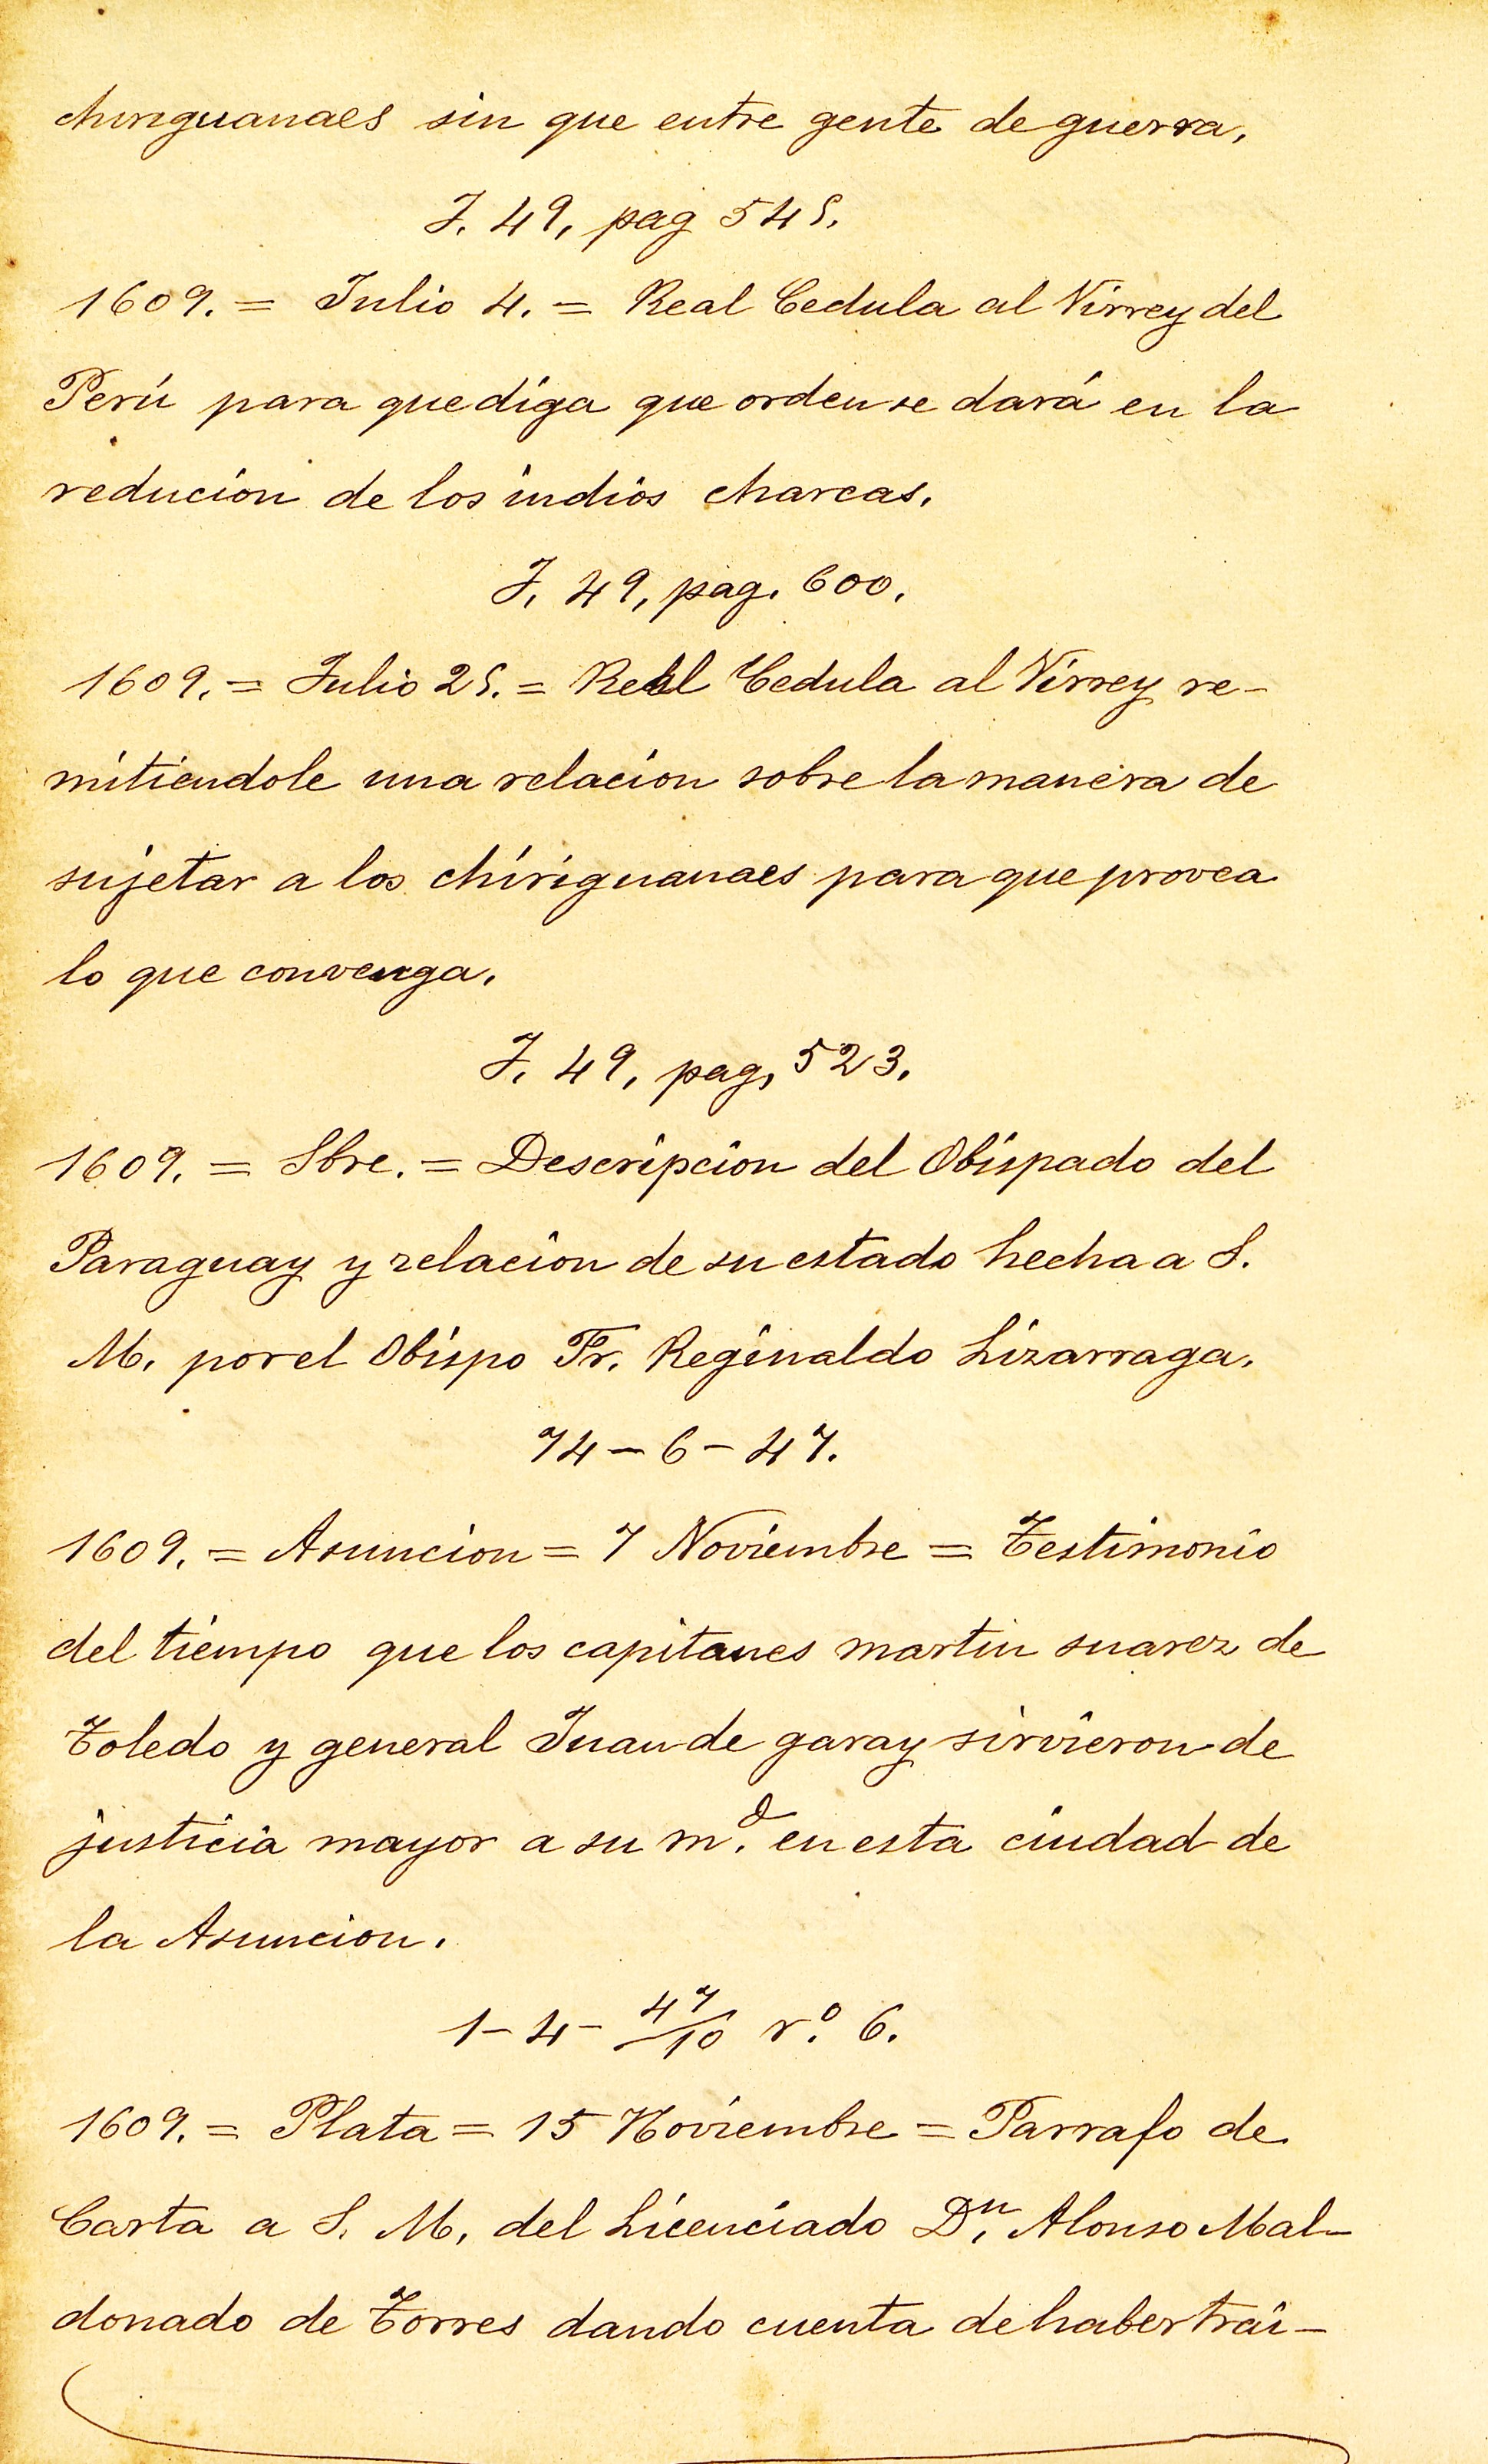 chiriguanaes sin que entre gente de guerra.
J. 49, pag 545.
1609. = Julio 4. = Real Cedula al Virrey del
Perú para que diga que orden se dará en la
reducion de los indios charcas.
J. 49, pag. 600.
1609. = Julio 25. = Real Cedula al Virrey re-
mitiendole una relacion sobre la manera de
sujetar a los chiriguanaes para que provea
lo que convenga.
J. 49, pag. 523.
1609. = Sbre. = Descripcion del Obispado del
Paraguay y relacion de su estado hecha a S.
M. por el Obispo Fr. Reginaldo Lizarraga.
74-6-47.
1609. = Asuncion = 7 Noviembre = Testimonio
del tiempo que los capitanes martin suarez de
Toledo y general Juan de garay sirvieron de
justicia mayor a su m.d en esta ciudad de
la Asuncion.
1-4-47/10 r.º 6.
1609. = Plata = 15 Noviembre = Parrafo de
Carta a S. M. del Licenciado D.n Alonso Mal-
donado de Torres dando cuenta de haber trai-